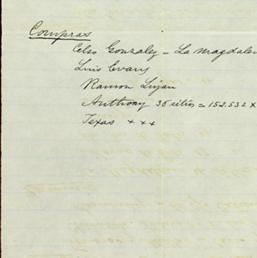 Compras
Celso Gonzalez - La Magdalen
Luis Evans
Ramon Lujan
Anthony 36 sitios = 152.532 x
Texas + + +